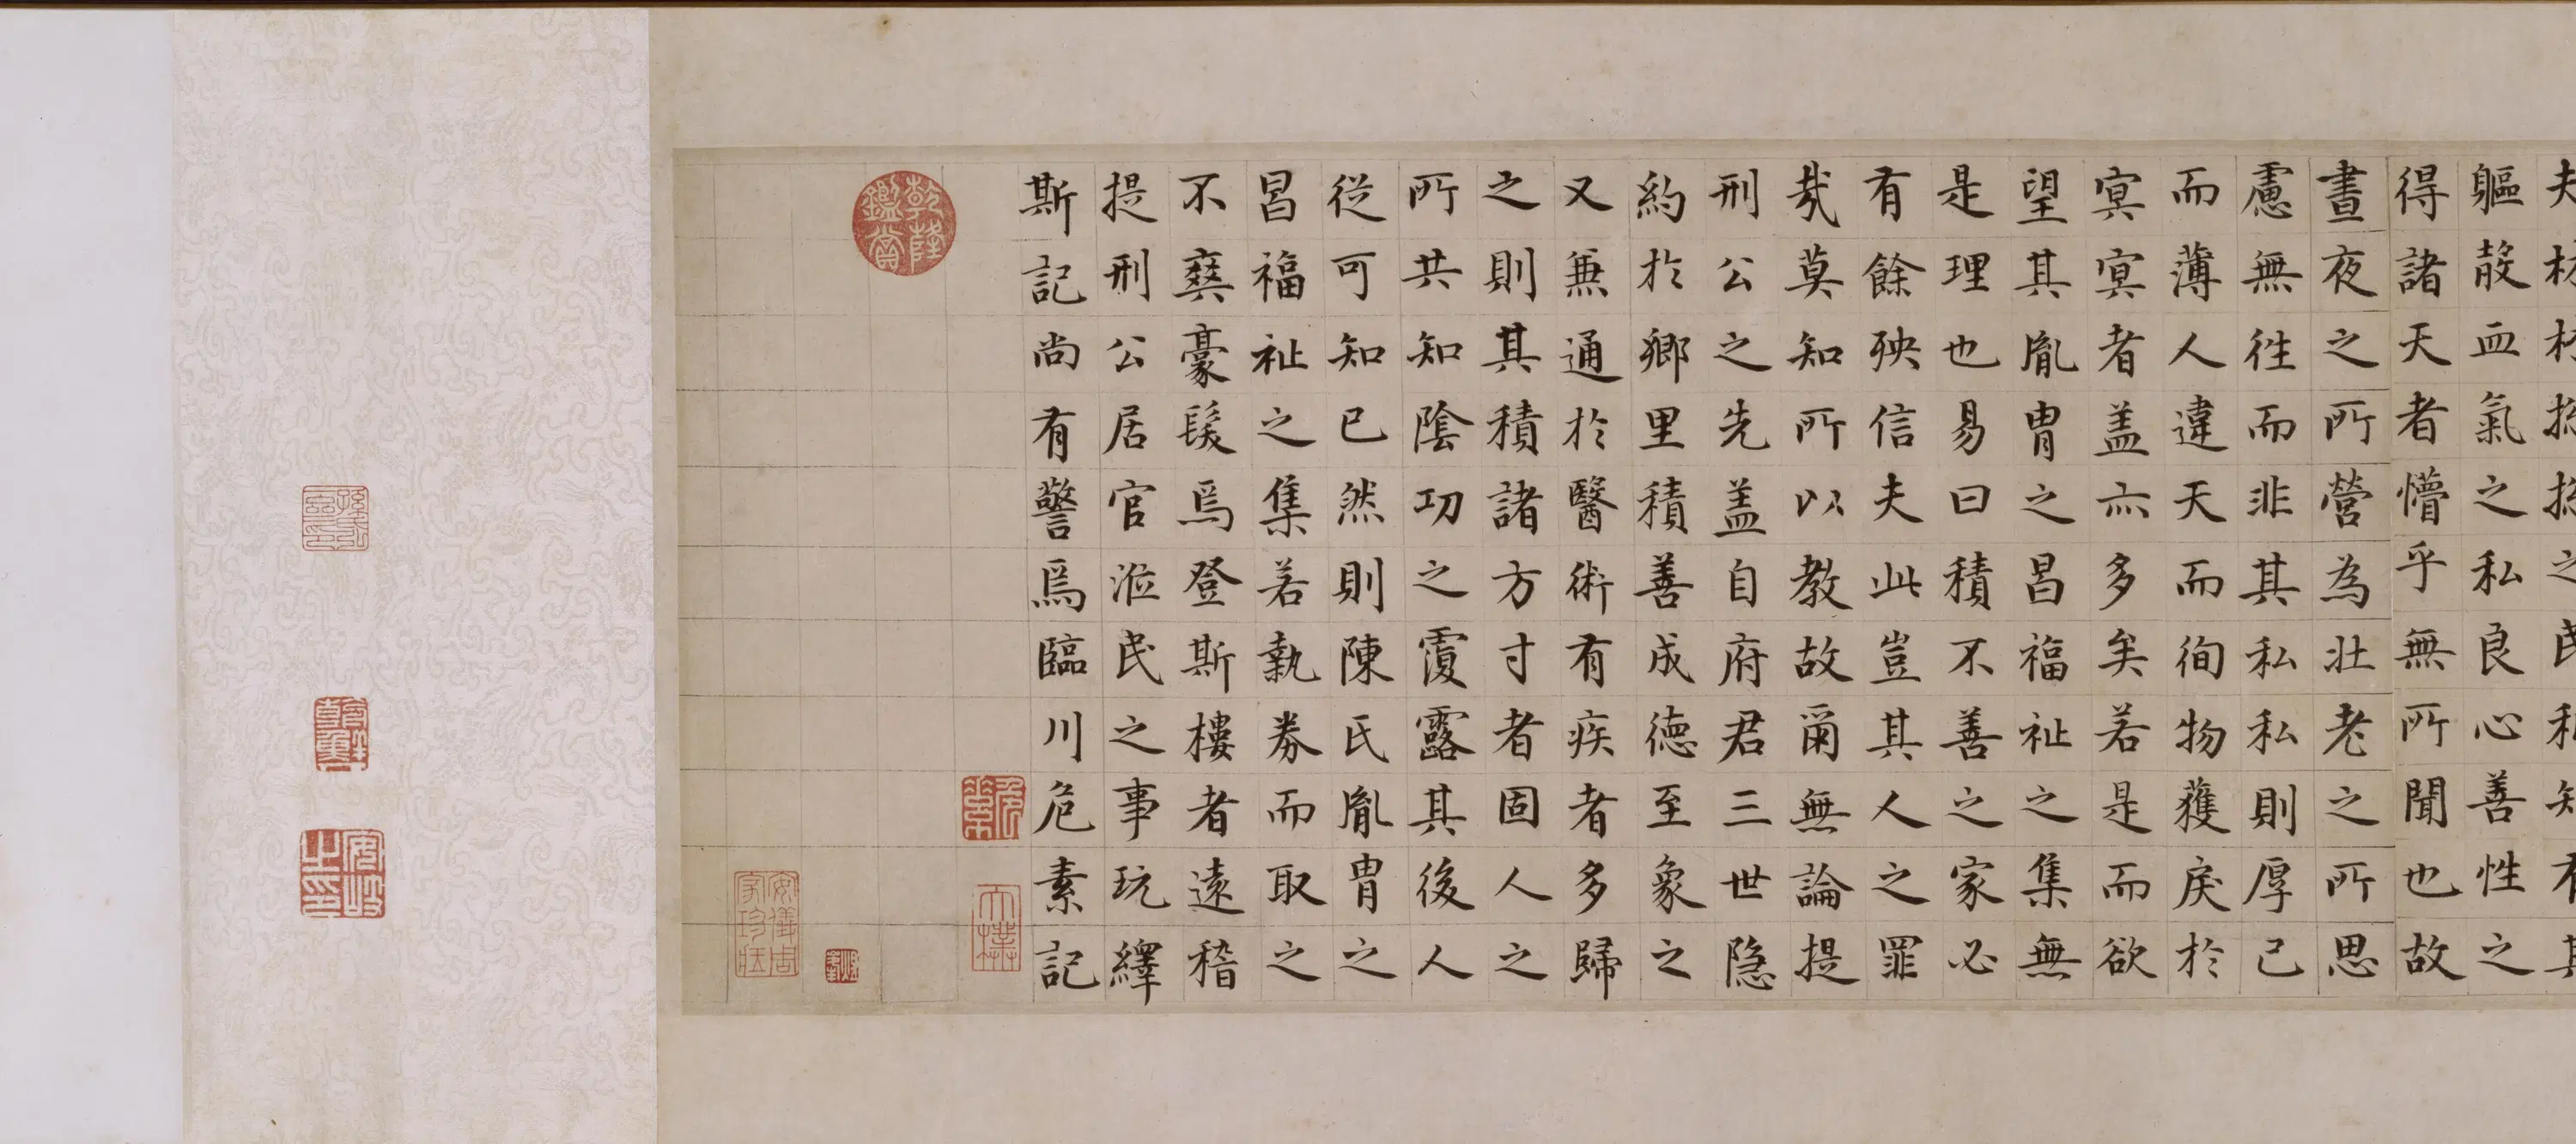 軀殼血氣之私良心善性之
得諸天者懵乎無所聞也故
晝夜之所營為壯老之所思
慮無徃而非其私私則厚己
而薄人違天而徇物獲戾於
冥冥者盖亦多矣若是而欲
望其胤胄之昌福祉之集無
是理也易曰積不善之家必
有餘殃信夫此豈其人之罪
哉莫知所以教故爾無論提
刑公之先盖自府君三世隐
約於鄉里積善成德至象之
又兼通於醫術有疾者多歸
之則其積諸方寸者固人之
所共知陰功之覆露其後人
從可知已然則陳氏胤胄之
昌福祉之集若執券而取之
不爽豪髮焉登斯樓者遠稽
提刑公居官涖民之事玩繹
斯記尚有警焉臨川危素記
危素
太樸
乾隆鑑賞
安儀周家珍藏
安岐之印